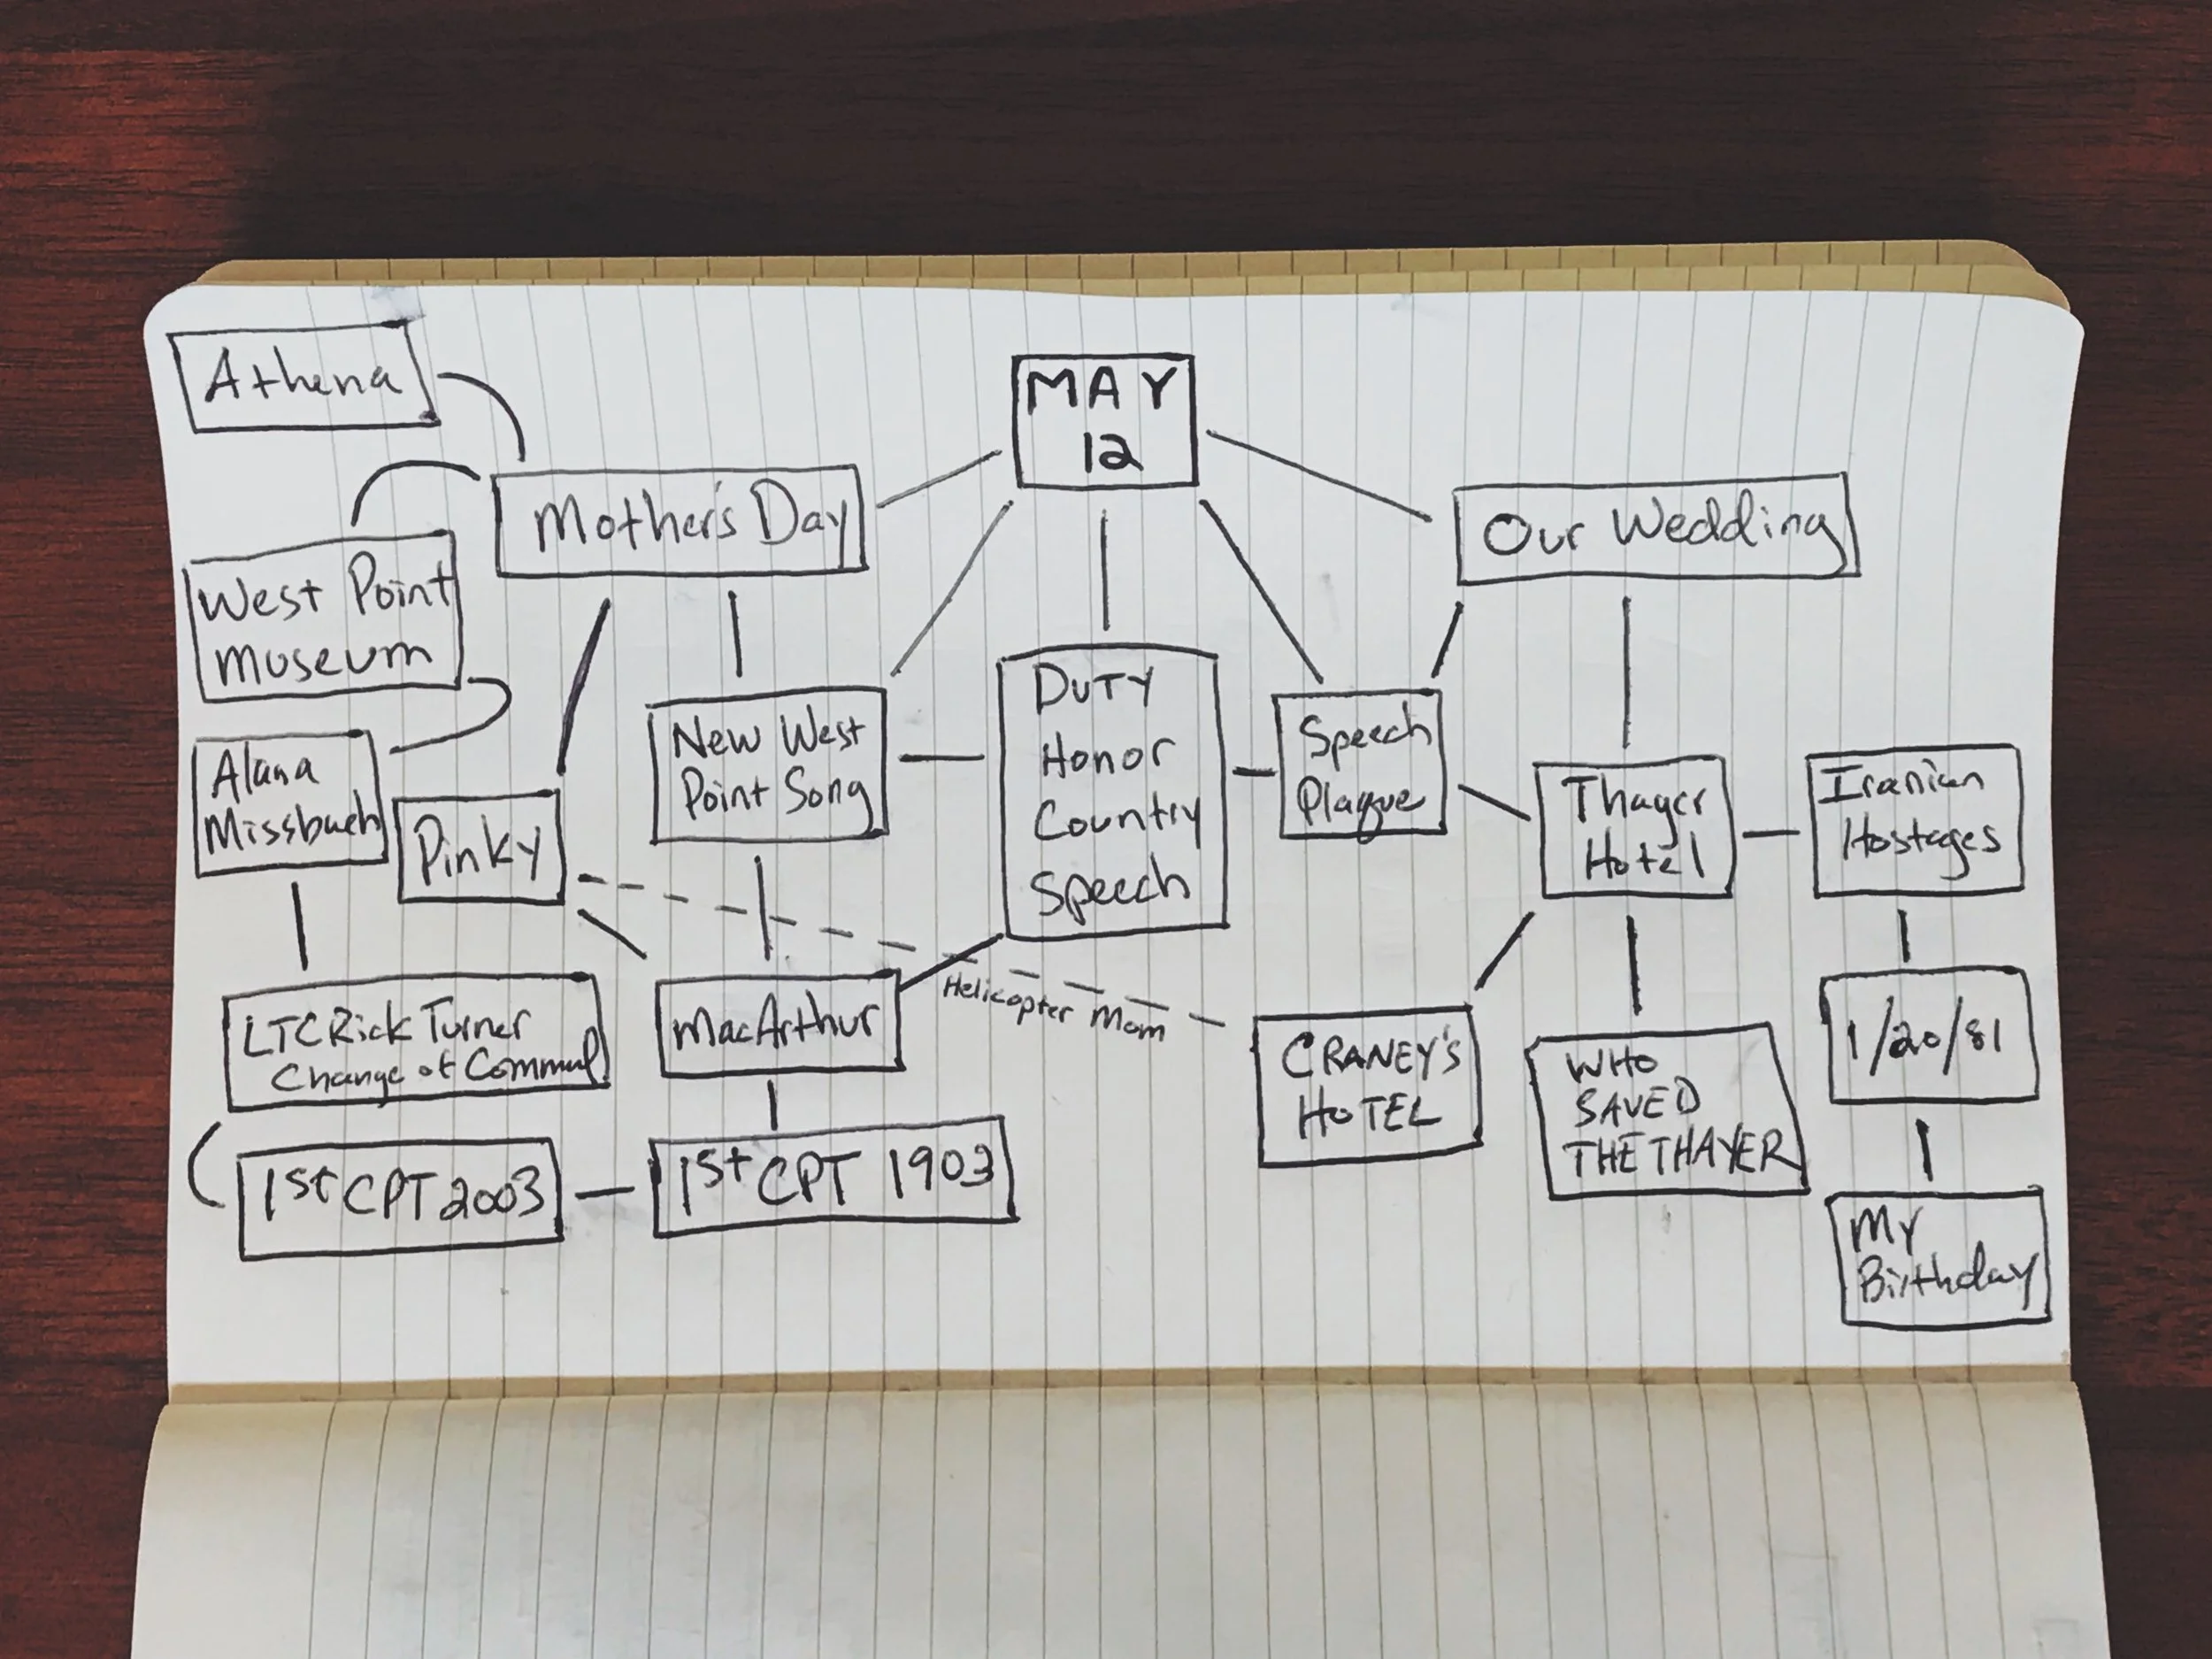 Athena
MAY
12
Mother's Day
Our Wedding
West Point
Museum
New West
Point Song
DUTY
Honor
Country
Speech
Speech
Plaque
Thayer
Hotel
Iranian
Hostages
Alana
Missbach
Pinky
Helicopter Mom
LTC Rick Turner
Change of Command
MacArthur
CRANEY'S
HOTEL
WHO
SAVED
THE THAYER
1/20/81
1st CPT 2003
1st CPT 1903
My
Birthday